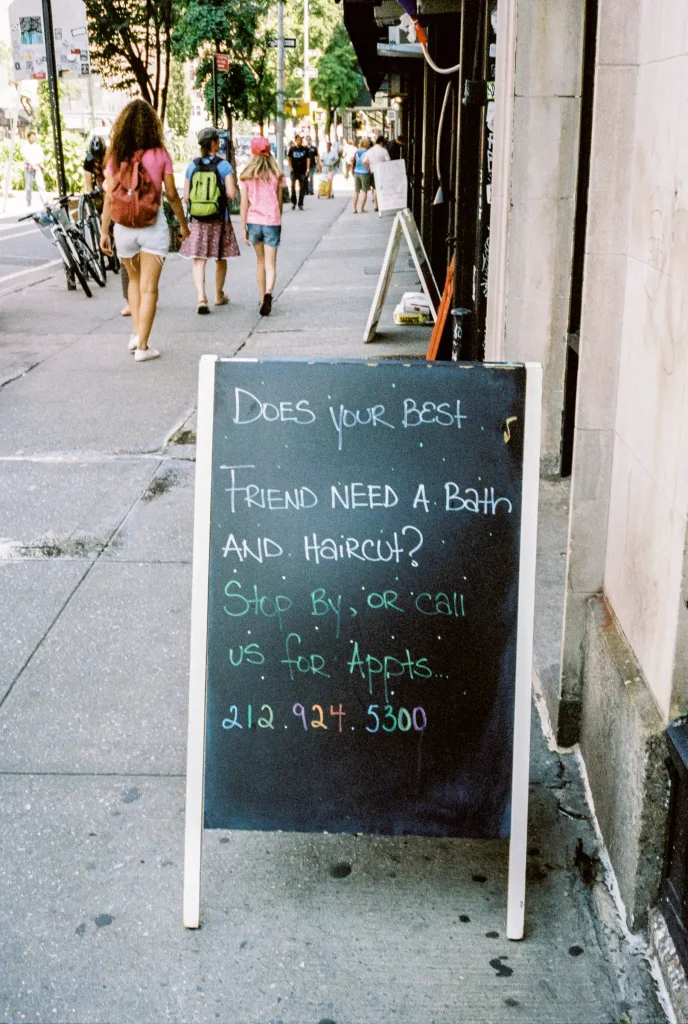 Does your Best
Friend need a Bath
and Haircut?
Stop By, or call
us for Appts...
212.924.5300